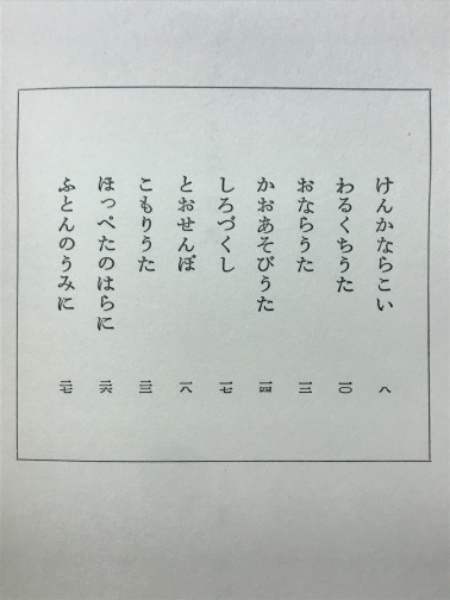 けんかならこい 八
わるくちうた 一〇
おならうた 一二
かおあそびうた 一四
しろづくし 一七
とおせんぼ 一八
こもりうた 二二
ほっぺたのはらに 二六
ふとんのうみに 二七